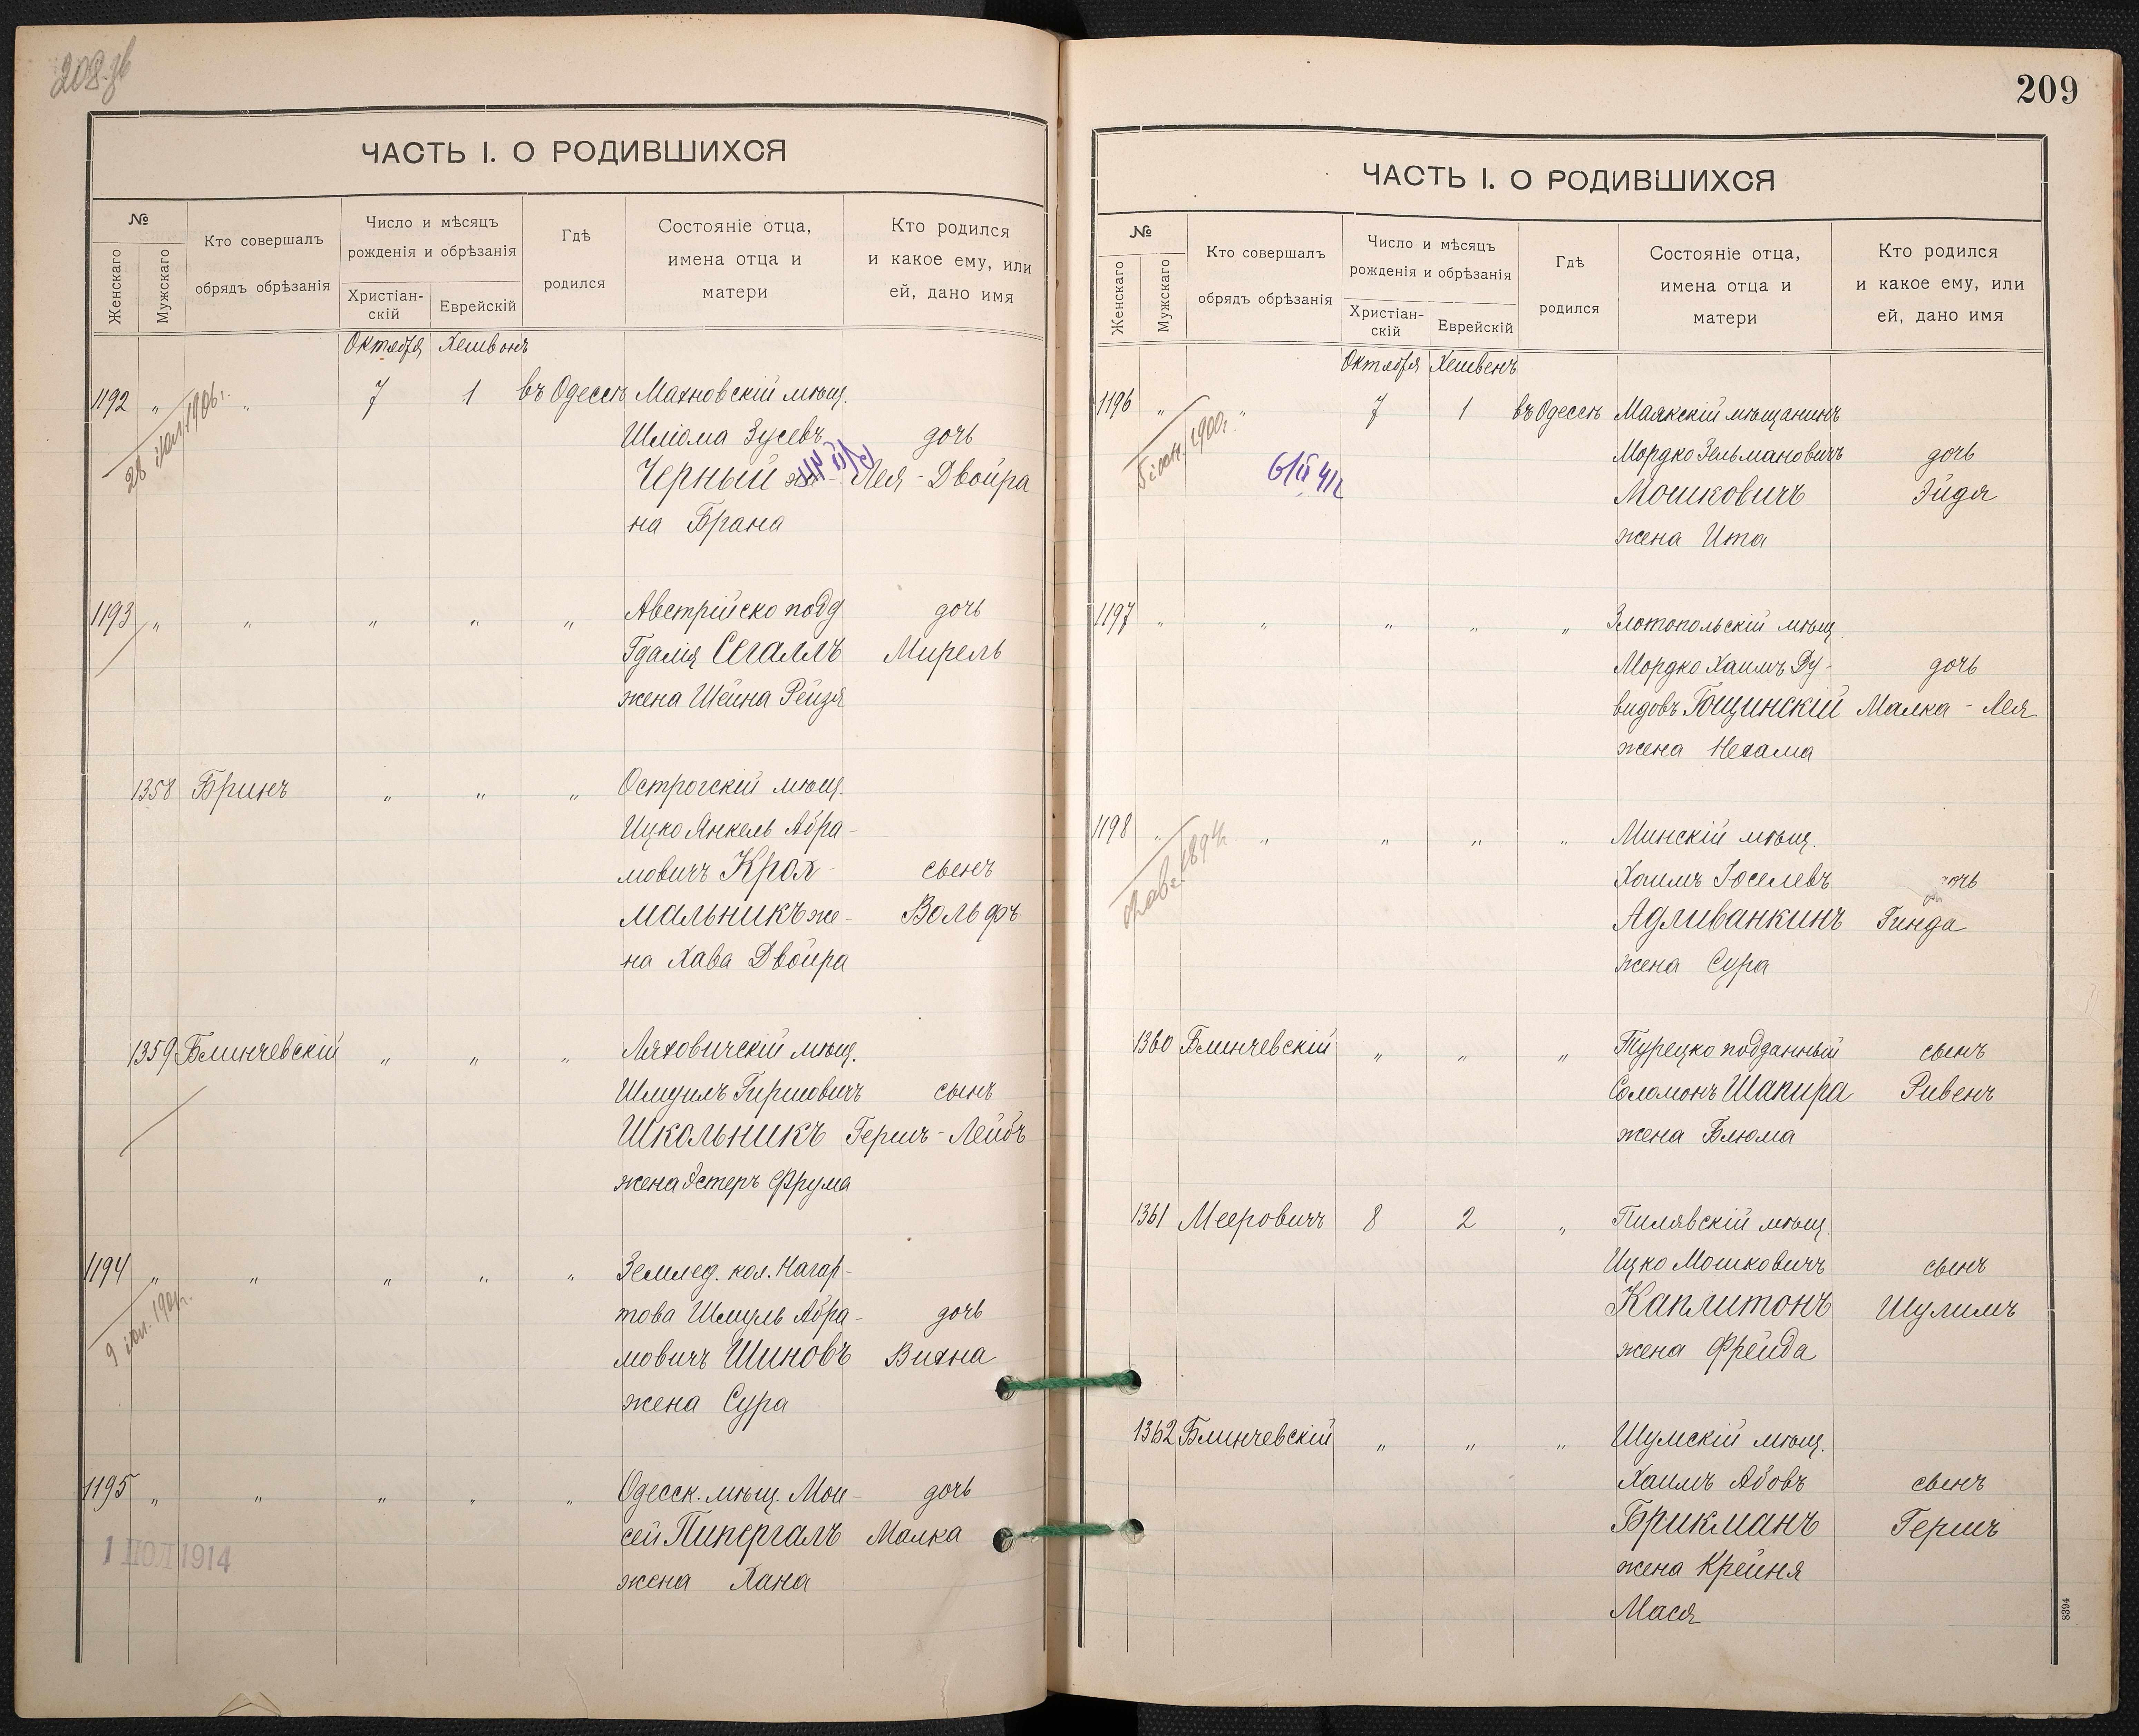 208 зв
ЧАСТЬ I. О РОДИВШИХСЯ
№
Женскаго
Мужскаго
Кто совершалъ
обрядъ обрѣзанія
Число и мѣсяцъ
рожденія и обрѣзанія
Христіан-
скій
Еврейскій
Гдѣ
родился
Состояніе отца,
имена отца и
матери
Кто родился
и какое ему, или
ей, дано имя
Октября Хешвонъ
1192 „ „ 7 1 въ Одессѣ Махновскій мѣщ.
28 іюл. 1906 г.
Шліома Зусевъ дочь
Черный же- Лея-Двойра
на Брана
1193 „ „ „ „ „ Австрійско подд дочь
Гдалія Сегаллъ Мирель
жена Шейна Рейзя
1358 Бринъ „ „ „ Острогскій мѣщ.
Ицко Янкель Абра-
мовичъ Крах- сынъ
мальникъ же- Вольфъ
на Хава Двойра
1359 Блинчевскій „ „ „ Ляховичскій мѣщ.
Шмуилъ Гиршовичъ сынъ
Школьникъ Гершъ-Лейбъ
жена Эстеръ Фрума
1194 „ „ „ „ „ Землед. кол. Нагар-
9 іюл. 190
това Шмуль Абра- дочь
мовичъ Шиновъ Вихна
жена Сура
1195 „ „ „ „ „ Одесск. мѣщ. Мои- дочь
сей Пипергалъ Малка
1 ІЮЛ 1914
жена Хана
209
ЧАСТЬ I. О РОДИВШИХСЯ
№
Женскаго
Мужскаго
Кто совершалъ
обрядъ обрѣзанія
Число и мѣсяцъ
рожденія и обрѣзанія
Христіан-
скій
Еврейскій
Гдѣ
родился
Состояніе отца,
имена отца и
матери
Кто родился
и какое ему, или
ей, дано имя
Октября Хешвенъ
1196 „ „ 7 1 въ Одессѣ Маякскій мѣщанинъ
1900 г.
Мордко Зельмановичъ дочь
6/II 41г
Мошковичъ Эйдя
жена Ита
1197 „ „ „ „ „ Злотопольскій мѣщ.
Мордко Хаимъ Ду- дочь
видовъ Гощинскій Малка-Лея
жена Нехама
1198 „ „ „ „ „ Минскій мѣщ.
Хаимъ Іоселевъ дочь
Адливанкинъ Гинда
жена Сура
1360 Блинчевскій „ „ „ Турецко подданный сынъ
Соломонъ Шапира Ривенъ
жена Блюма
1361 Мееровичъ 8 2 „ Пилявскій мѣщ.
Ицко Мошковичъ сынъ
Каплитонъ Шулимъ
жена Фрейда
1362 Блинчевскій „ „ „ Шумскій мѣщ.
Хаимъ Абовъ сынъ
Брикманъ Гершъ
жена Крейня
Мася
8394